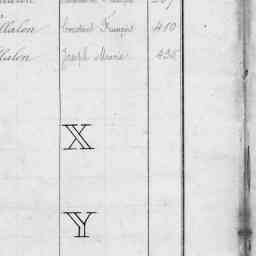 llalon Constant François 410
llalon Joseph Marie 436
X
Y